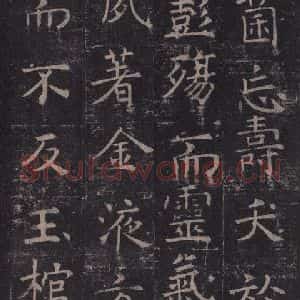 菌忘壽夭於
彭殤而靈氣
夙著金液
而不反玉棺
Shufawang.CN